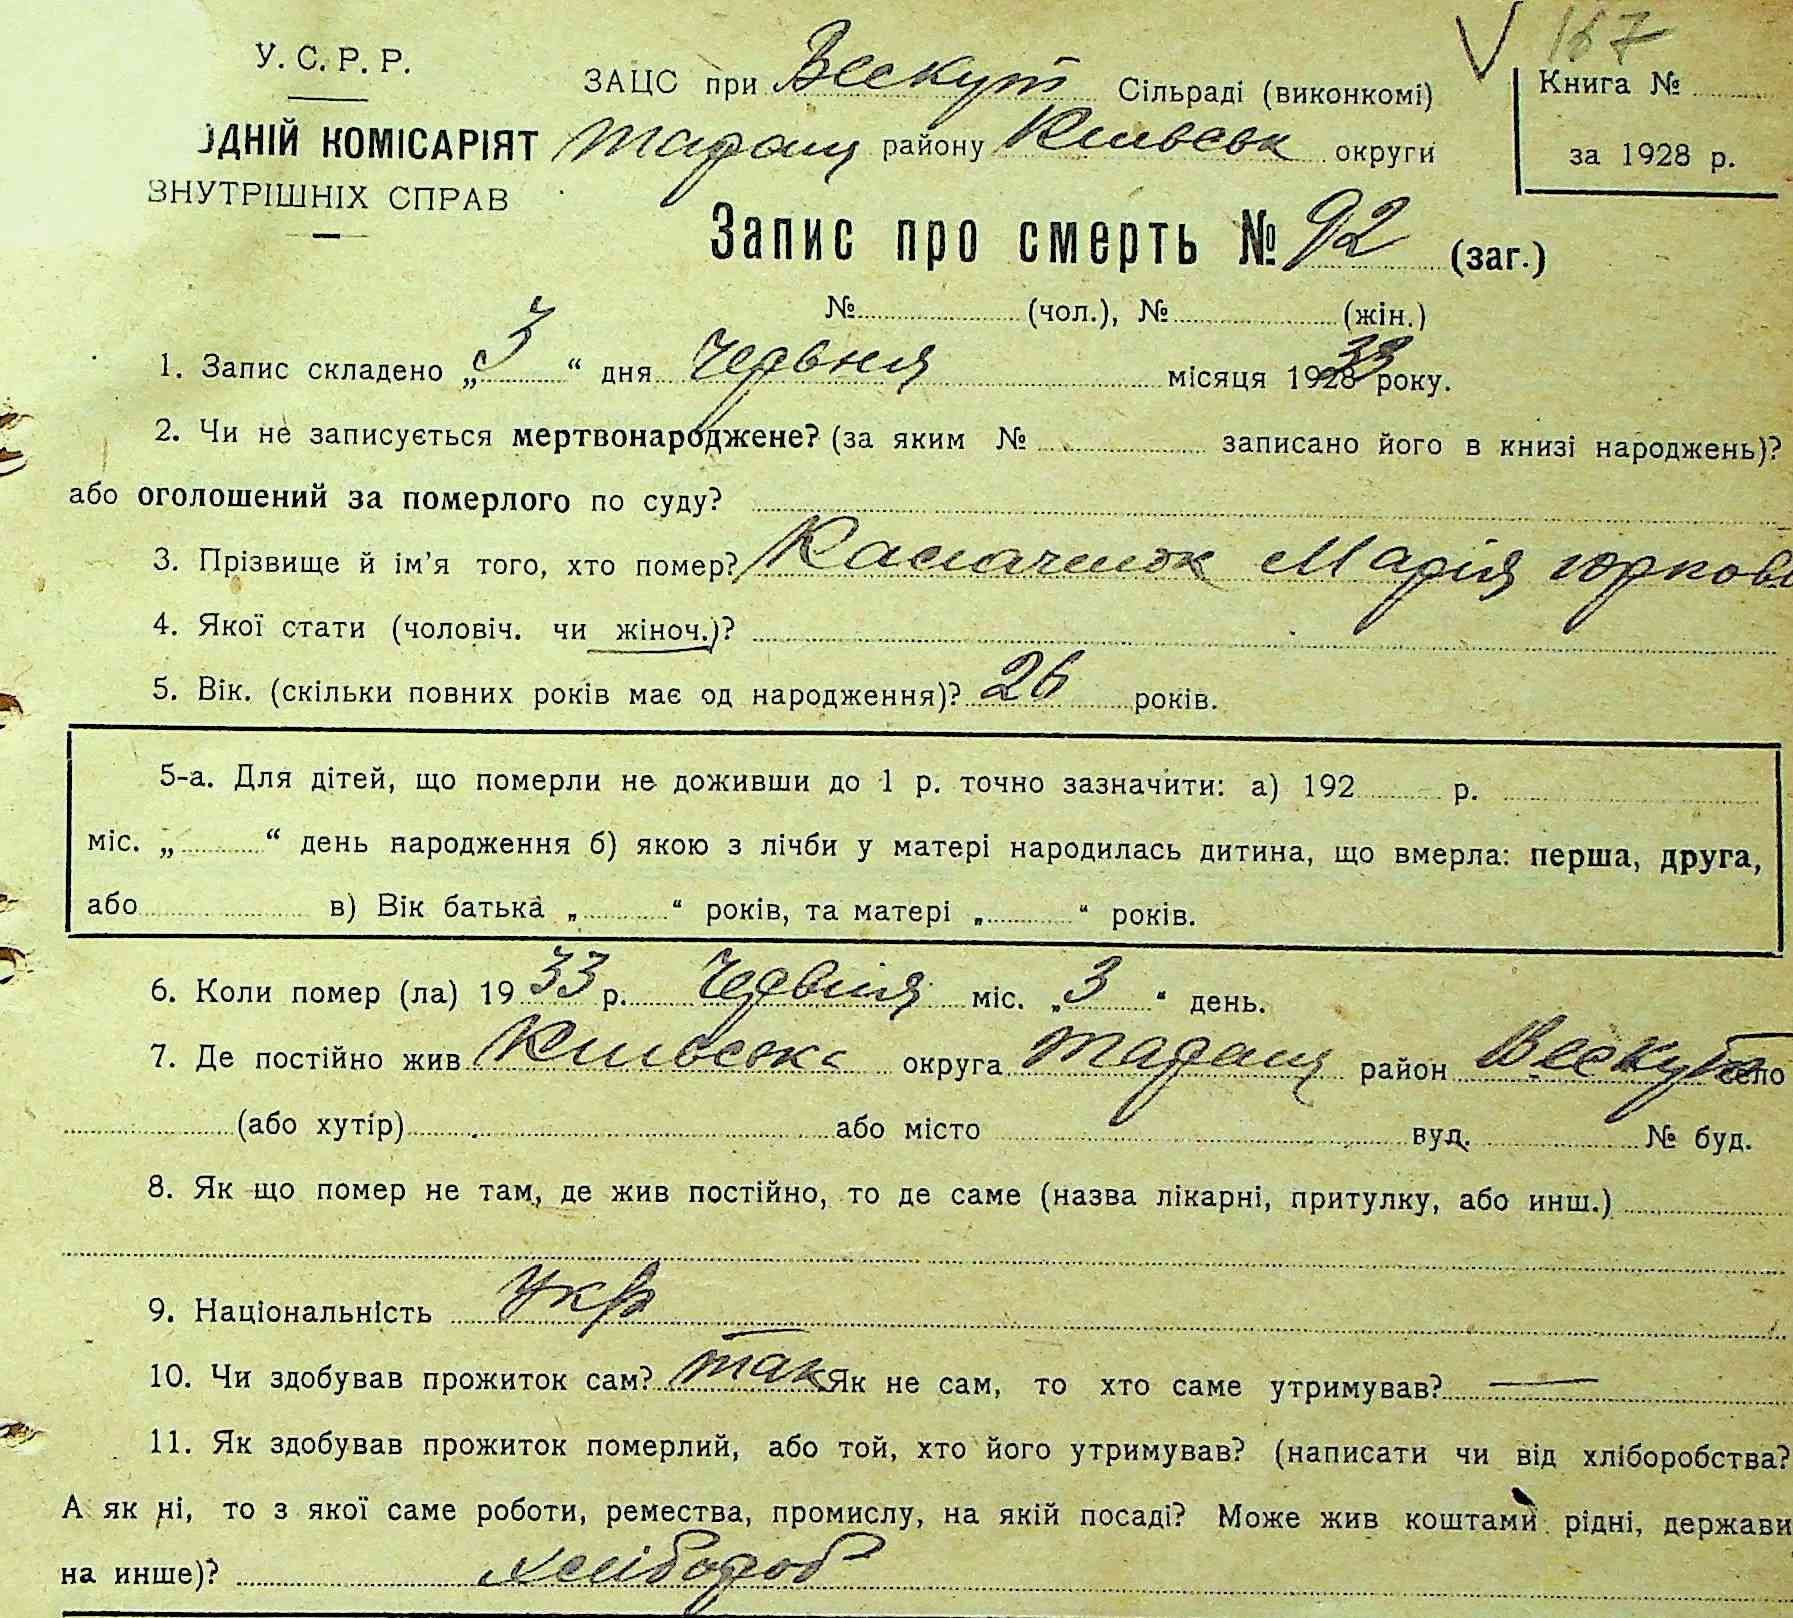 187
У. С. Р. Р.
ЗАЦС при Вескут Сільраді (виконкомі)
Книга №
ОДНІЙ КОМІСАРІЯТ Таращ району Київськ округи
за 1928 р.
ВНУТРІШНІХ СПРАВ
Запис про смерть № 92 (заг.)
№ (чол.), № (жін.)
1. Запис складено „3“ дня Червня місяця 1928 33 року.
2. Чи не записується мертвонароджене? (за яким № записано його в книзі народжень)?
або оголошений за померлого по суду?
3. Прізвище й ім’я того, хто помер? Марія Юркова
4. Якої стати (чоловіч. чи жіноч.)?
5. Вік. (скільки повних років має од народження)? 26 років.
5-а. Для дітей, що померли не доживши до 1 р. точно зазначити: а) 192 р.
міс. „ “ день народження б) якою з лічби у матері народилась дитина, що вмерла: перша, друга,
або в) Вік батька „ “ років, та матері „ “ років.
6. Коли помер (ла) 1933 р. Червня міс. „3“ день.
7. Де постійно жив Київська округа Таращ район Вескута село
(або хутір) або місто вуд. № буд.
8. Як що помер не там, де жив постійно, то де саме (назва лікарні, притулку, або инш.)
9. Національність Укр
10. Чи здобував прожиток сам? так Як не сам, то хто саме утримував? —
11. Як здобував прожиток померлий, або той, хто його утримував? (написати чи від хліборобства?
А як ні, то з якої саме роботи, ремества, промислу, на якій посаді? Може жив коштами рідні, держави
на инше)? хлібороб